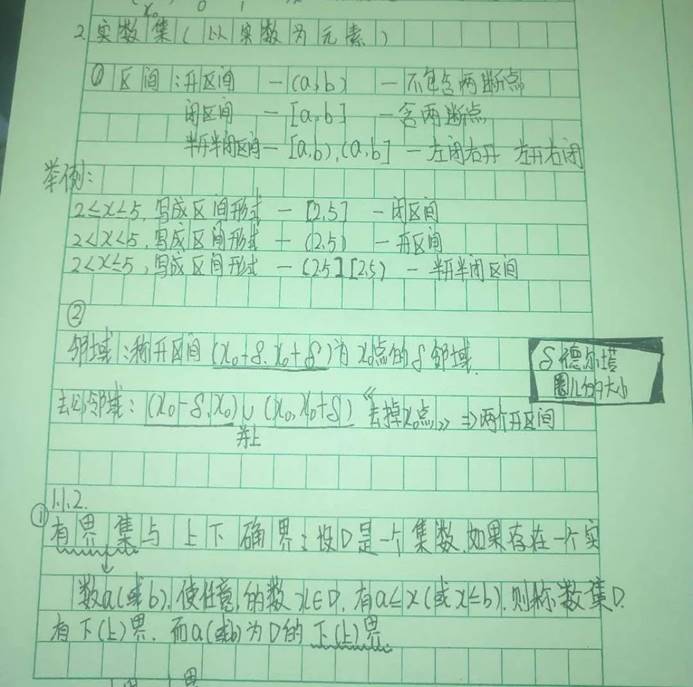 x₀ 0 1
2. 实数集(以实数为元素)
① 区间:开区间 — (a,b) — 不包含两断点
闭区间 — [a,b] — 含两断点
半开半闭区间 — [a,b),(a,b] — 左闭右开 左开右闭
举例:
2≤x≤5,写成区间形式 — [2,5] — 闭区间
2<x<5,写成区间形式 — (2,5) — 开区间
2<x≤5,写成区间形式 — (2,5] [2,5) — 半开半闭区间
②
邻域:称开区间(x₀+δ,x₀+δ)为x₀点的δ邻域.
δ德尔塔
圈儿的大小
去心邻域:(x₀-δ,x₀)∪(x₀,x₀+δ)《去掉x₀点》⇒两个开区间
并上
1.1.2.
① 有界集与上下确界:设D是一个集数,如果存在一个实
数a(或b),使任意的数x∈D,有a≤x(或x≤b),则称数集D
有下(上)界.而a(或b)为D的下(上)界